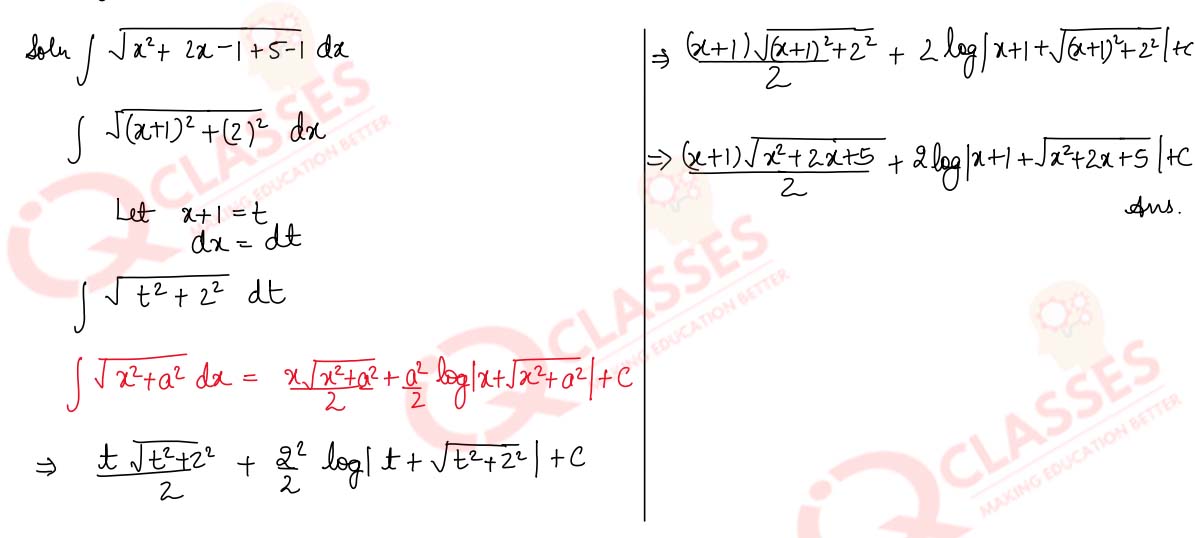 Soln ∫ √(x² + 2x - 1 + 5 - 1) dx
∫ √((x+1)² + (2)²) dx
Let x+1 = t
dx = dt
∫ √(t² + 2²) dt
∫ √(x²+a²) dx = x√(x²+a²)/2 + a²/2 log|x+√(x²+a²)| + C
⇒ t √(t²+2²)/2 + 2²/2 log| t + √(t²+2²) | + C
⇒ (x+1)√((x+1)²+2²)/2 + 2 log|x+1+√((x+1)²+2²)|+C
⇒ (x+1)√(x²+2x+5)/2 + 2log|x+1+√(x²+2x+5)|+C
Ans.
CLASSES
MAKING EDUCATION BETTER
CLASSES
MAKING EDUCATION BETTER
CLASSES
MAKING EDUCATION BETTER